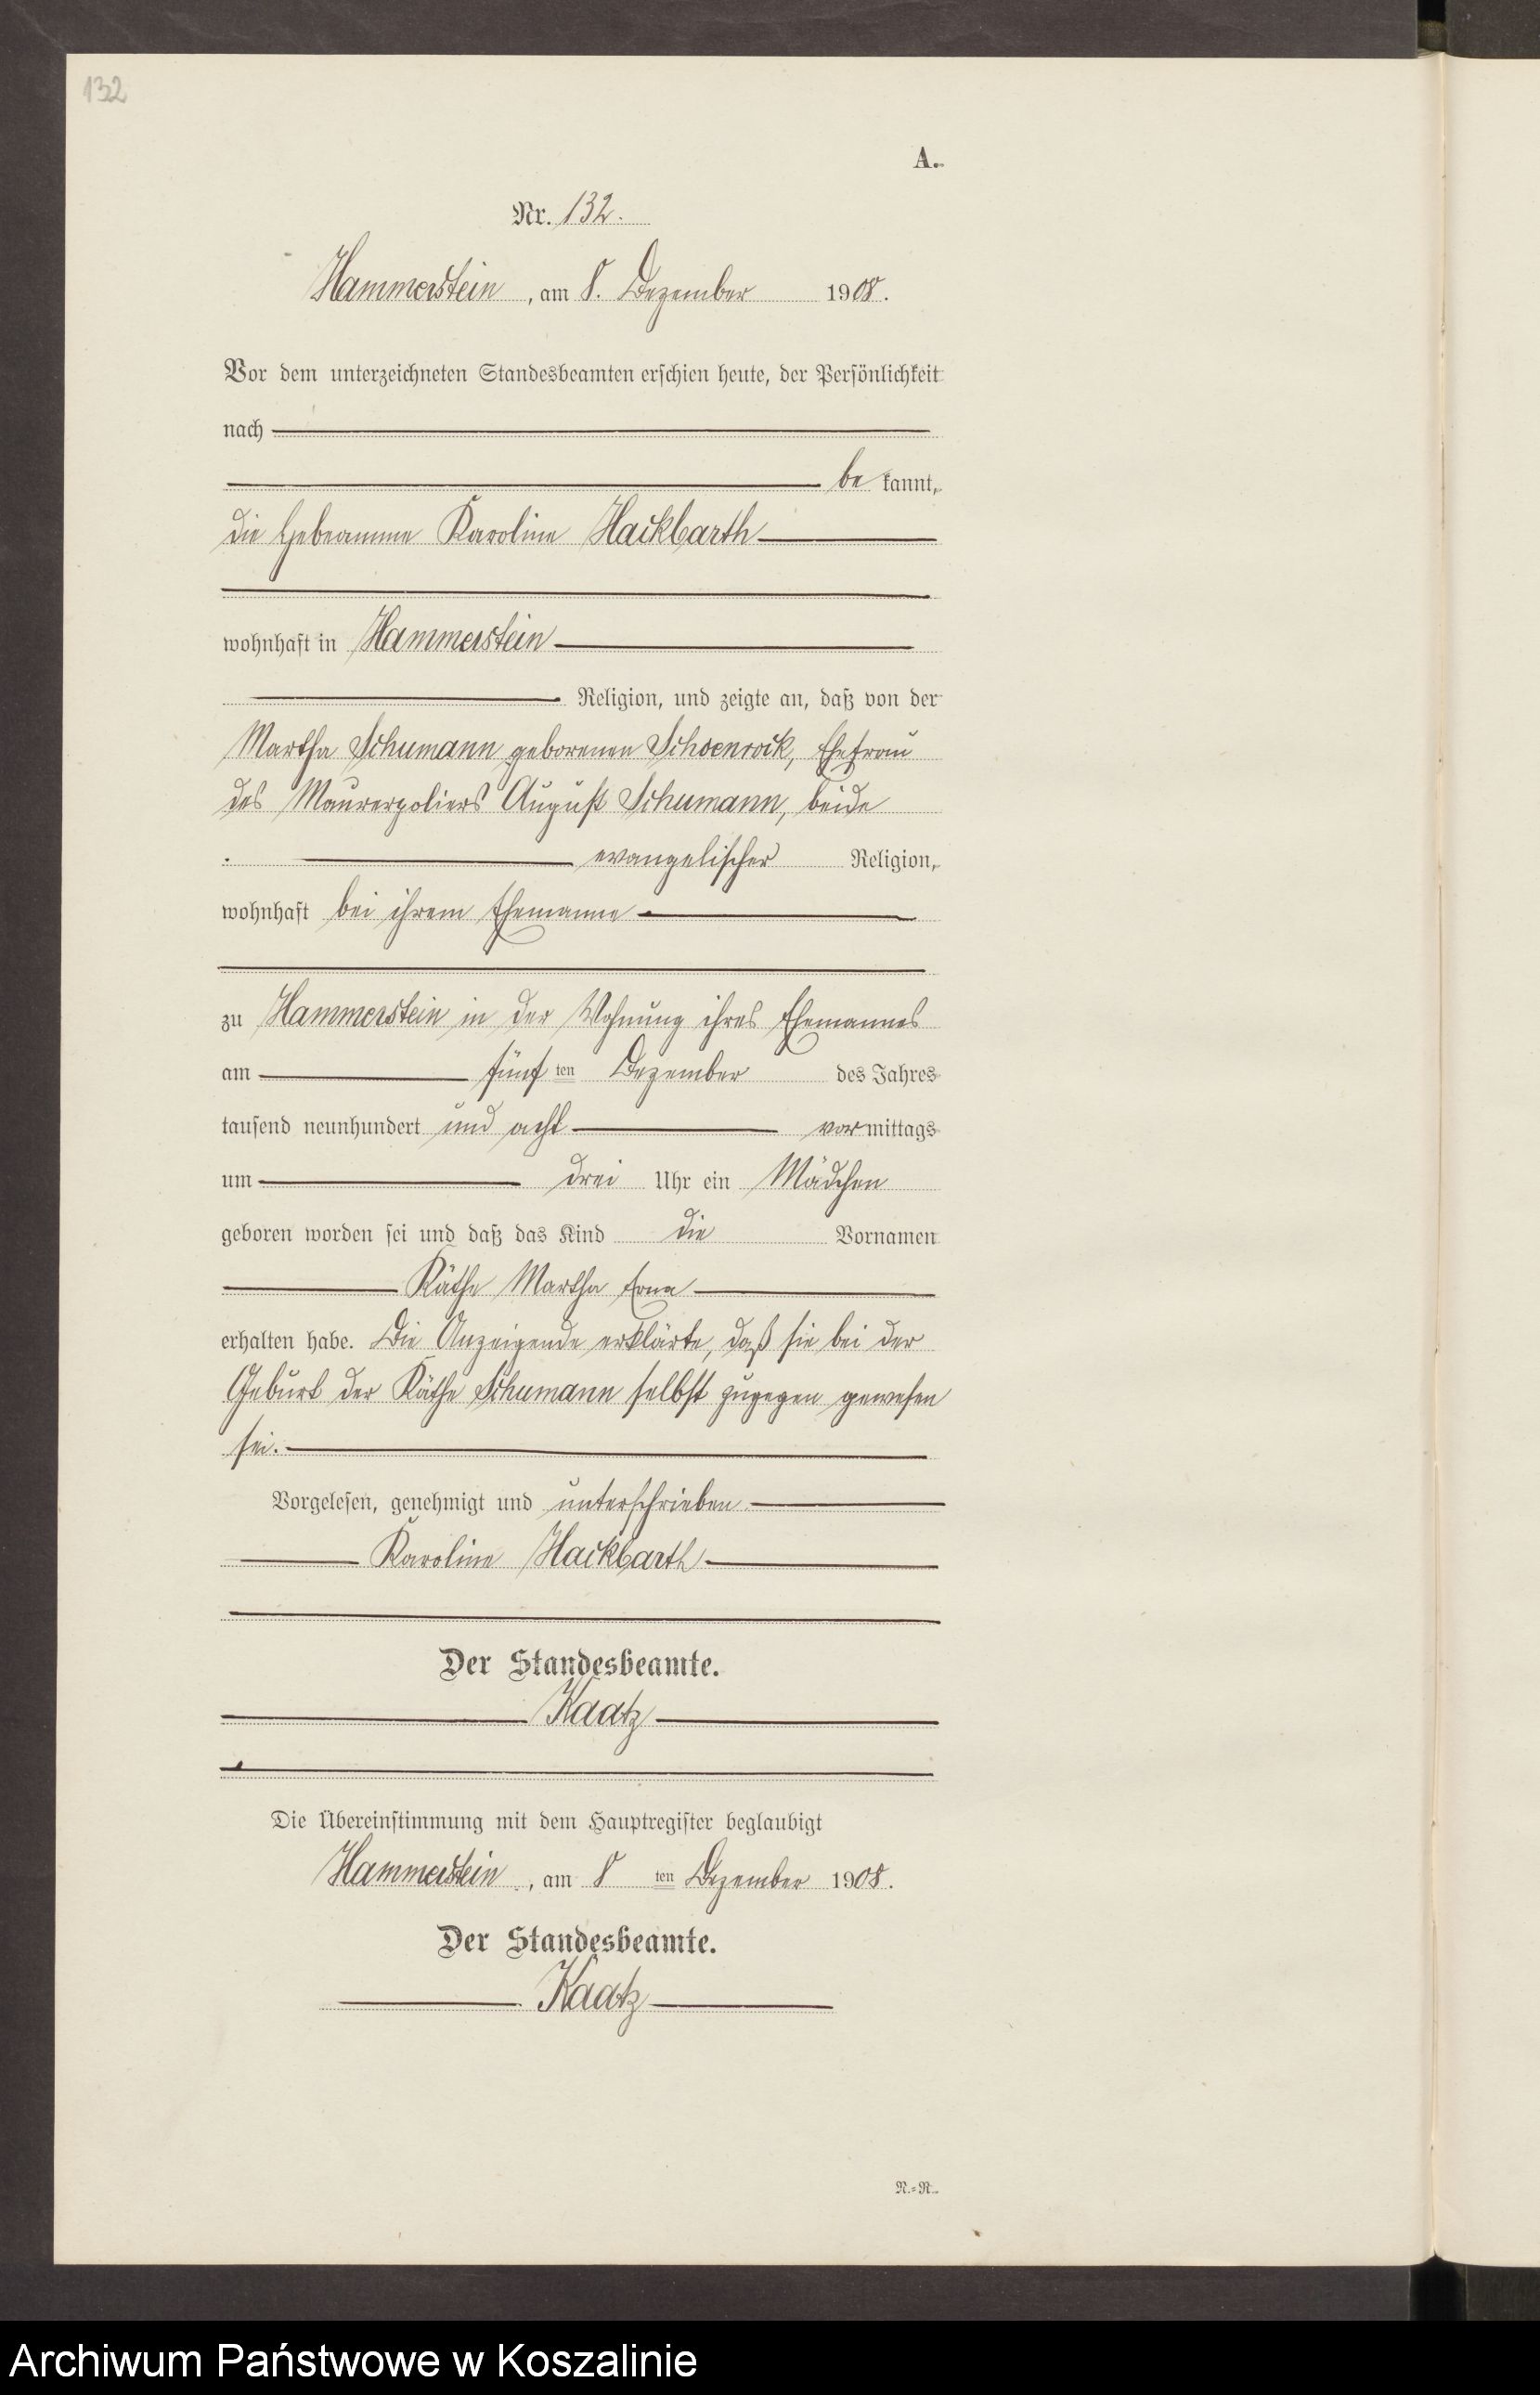 132
A.
Nr. 132.
Hammerstein, am 8. Dezember 1908.
Vor dem unterzeichneten Standesbeamten erschien heute, der Persönlichkeit
nach
be kannt,
die Hebeamme Karoline Hackbarth
wohnhaft in Hammerstein
Religion, und zeigte an, daß von der
Martha Schumann geborenen Schoenrock, Ehefrau
des Maurerpoliers August Schumann, beide
evangelischer Religion,
wohnhaft bei ihrem Ehemanne
zu Hammerstein in der Wohnung ihres Ehemannes
am fünf ten Dezember des Jahres
tausend neunhundert und acht vormittags
um drei Uhr ein Mädchen
geboren worden sei und daß das Kind die Vornamen
Käthe Martha Erna
erhalten habe. Die Anzeigende erklärte, daß sie bei der
Geburt der Käthe Schumann selbst zugegen gewesen
sei.
Vorgelesen, genehmigt und unterschrieben
Karoline Hackbarth
Der Standesbeamte.
Kaatz
Die Übereinstimmung mit dem Hauptregister beglaubigt
Hammerstein, am 8 ten Dezember 1908.
Der Standesbeamte.
Kaatz
N.=R.
Archiwum Państwowe w Koszalinie